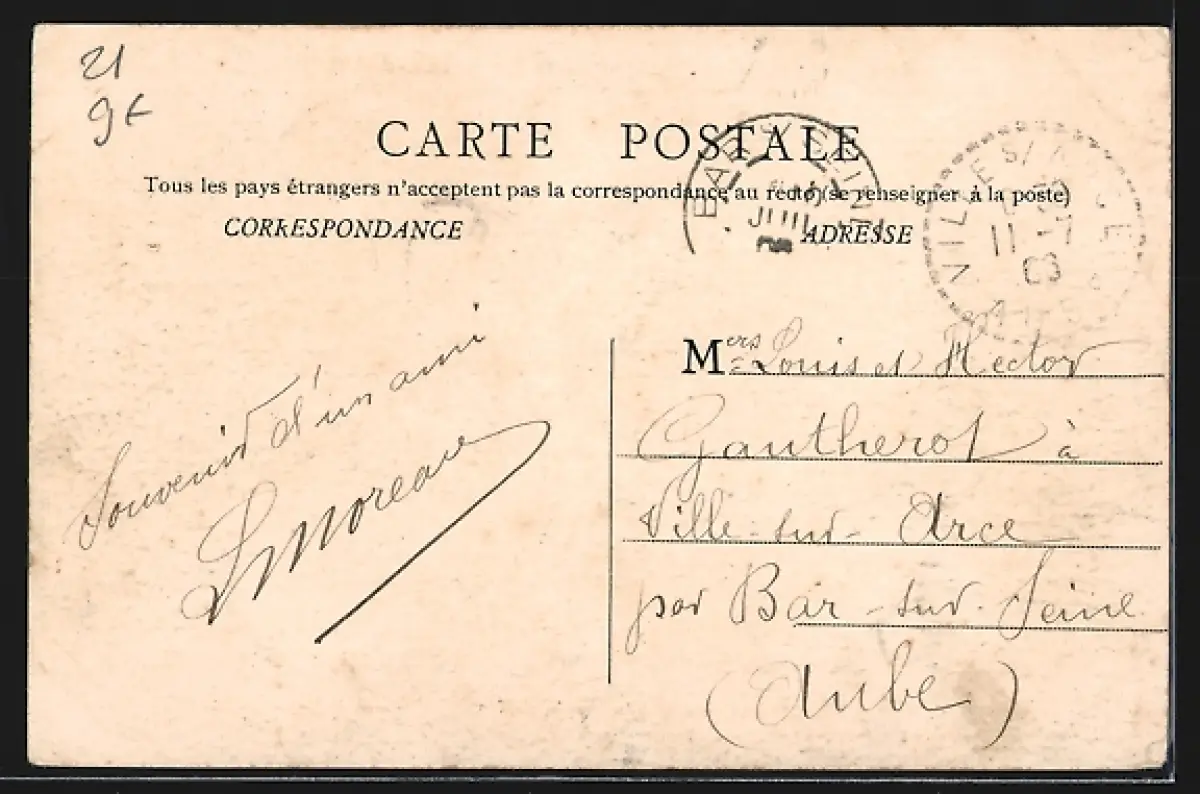 21
9€
CARTE POSTALE
Tous les pays étrangers n'acceptent pas la correspondance au recto (se renseigner à la poste)
CORRESPONDANCE
ADRESSE
Souvenir d'un ami
Moreau
Mers Louis et Hector
Gautherot à
Ville-sur-Arce
par Bar-sur-Seine
(Aube)